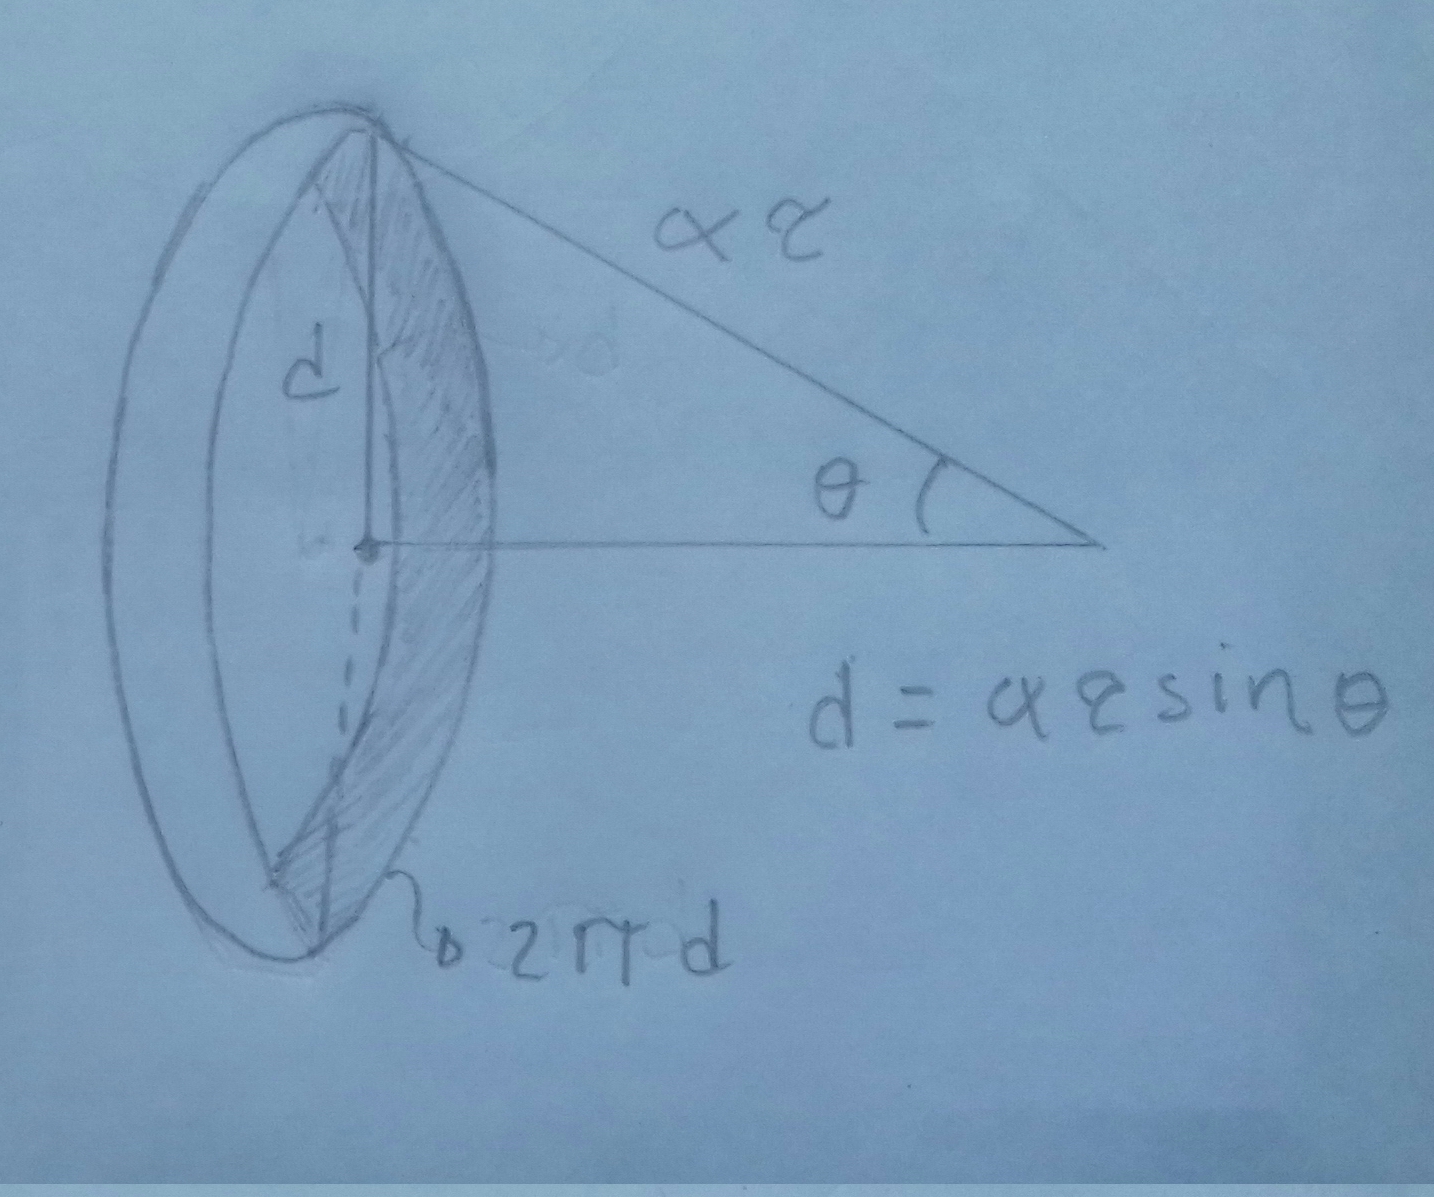 α r
d
θ
d = α r sin θ
2πd